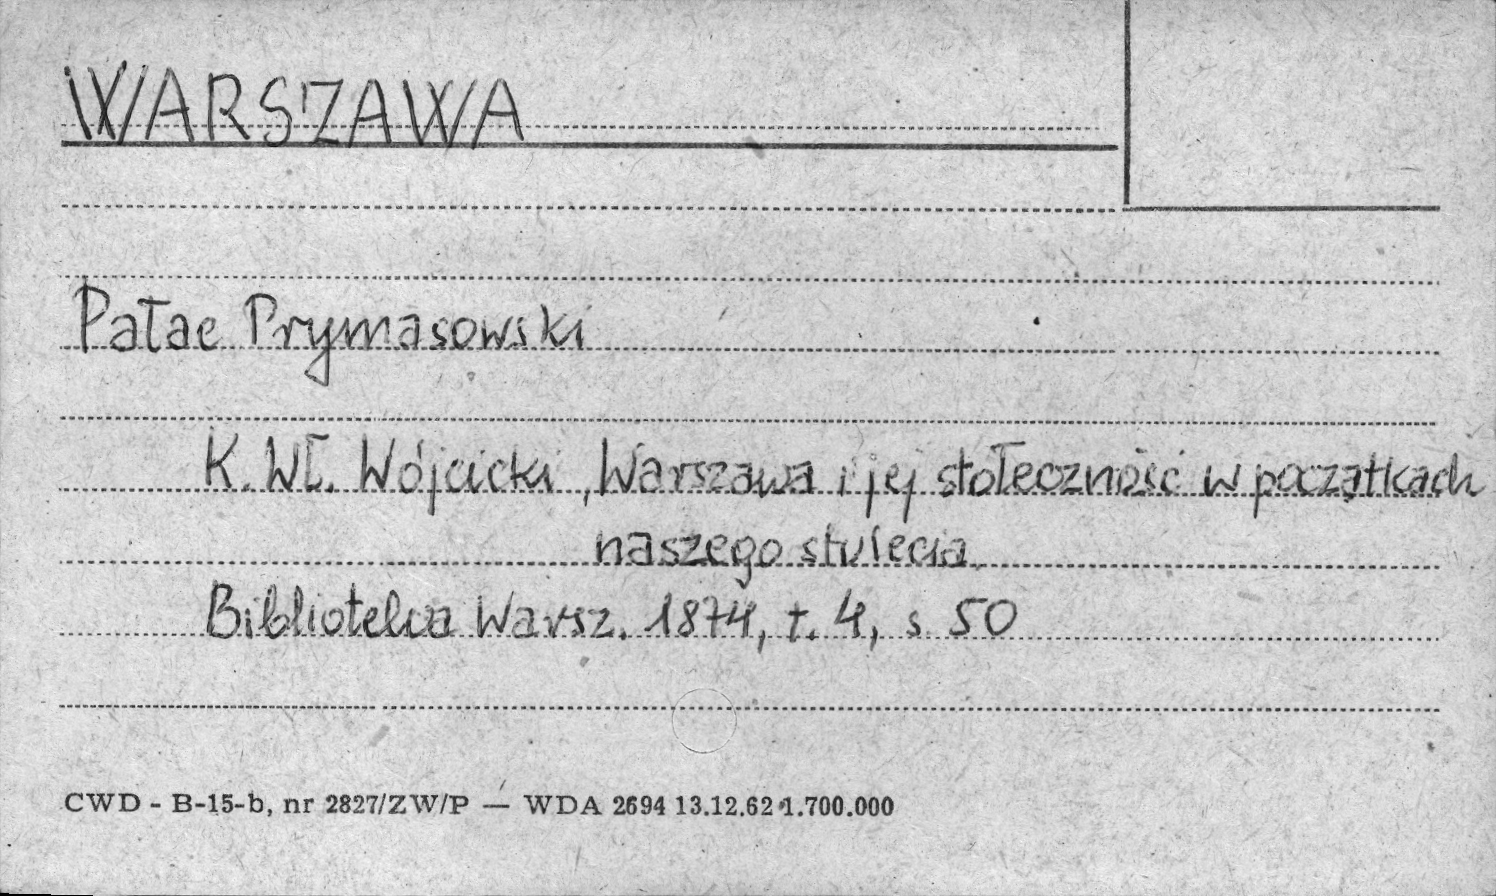 WARSZAWA
Pałac Prymasowski
K. Wł. Wójcicki, Warszawa i jej stołeczność w początkach
naszego stulecia.
Biblioteka Warsz. 1874, t. 4, s. 50
CWD - B-15-b, nr 2827/ZW/P — WDA 2694 13.12.62 1.700.000